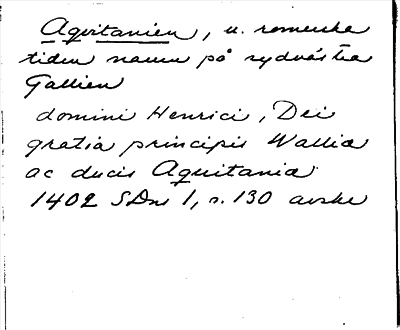 Aquitanien, u. romerska
tiden namn på sydvästra
Gallien
domini Henrici, Dei
gratia principis Wallia
ac ducis Aquitania
1402 SDns 1, s. 130 avskr